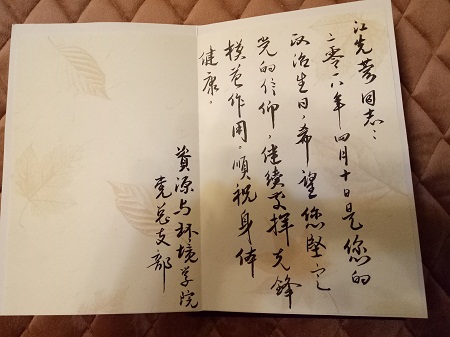 江先蓉同志：
二零一八年四月十日是您的
政治生日，希望您坚定
党的信仰，继续发挥先锋
模范作用。顺祝身体
健康。
资源与环境学院
党总支部